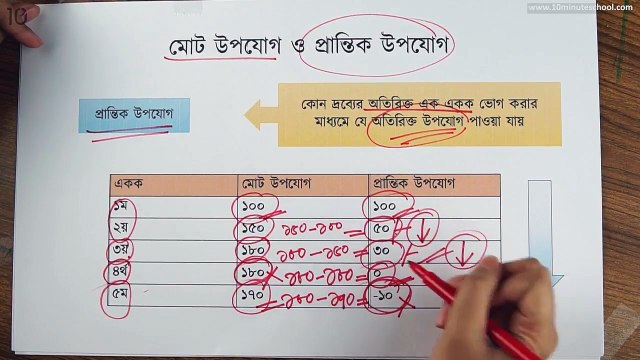 10
www.10minuteschool.com
মোট উপযোগ ও প্রান্তিক উপযোগ
প্রান্তিক উপযোগ
কোন দ্রব্যের অতিরিক্ত এক একক ভোগ করার
মাধ্যমে যে অতিরিক্ত উপযোগ পাওয়া যায়
একক মোট উপযোগ প্রান্তিক উপযোগ
১ম ১০০ ১০০
২য় ১৫০ ১৫০-১০০ = ৫০
৩য় ১৮০ ১৮০-১৫০ = ৩০
৪র্থ ১৮০ ১৮০-১৮০ = ০
৫ম ১৭০ = -১০